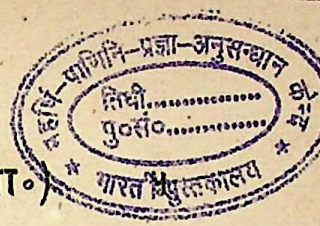 महर्षि-पाणिनि-प्रज्ञा-अनुसन्धान केन्द्र
तिथी..................
पु०सं०..................
* पुस्तकालय *
ा०)